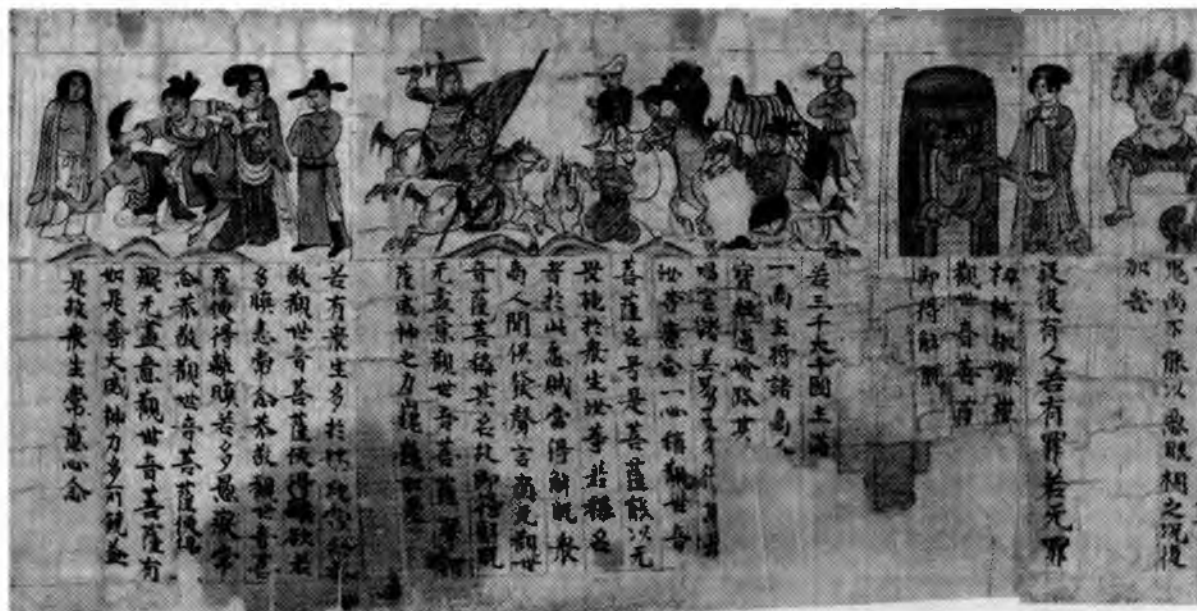 鬼尚不能以惡眼視之況復
加害
設復有人若有罪若无罪
杻械枷鎖
觀世音菩薩
即得解脫
若三千大千國土滿
一商主將諸商人
寶經過嶮路其
唱言諸善男子
汝等應當一心稱觀世音
菩薩名号是菩薩能以无
畏施於衆生汝等若稱名
者於此怨賊當得解脫衆
商人聞俱發聲言南无觀世
音薩菩稱其名故即得解脫
无盡意觀世音菩薩摩訶
薩威神之力巍巍如是
若有衆生多於婬欲
敬觀世音菩薩便得離欲若
多瞋恚常念恭敬觀世音菩
薩便得離瞋若多愚癡常
念恭敬觀世音菩薩便得
癡无盡意觀世音菩薩有
如是等大威神力多所饒益
是故衆生常應心念